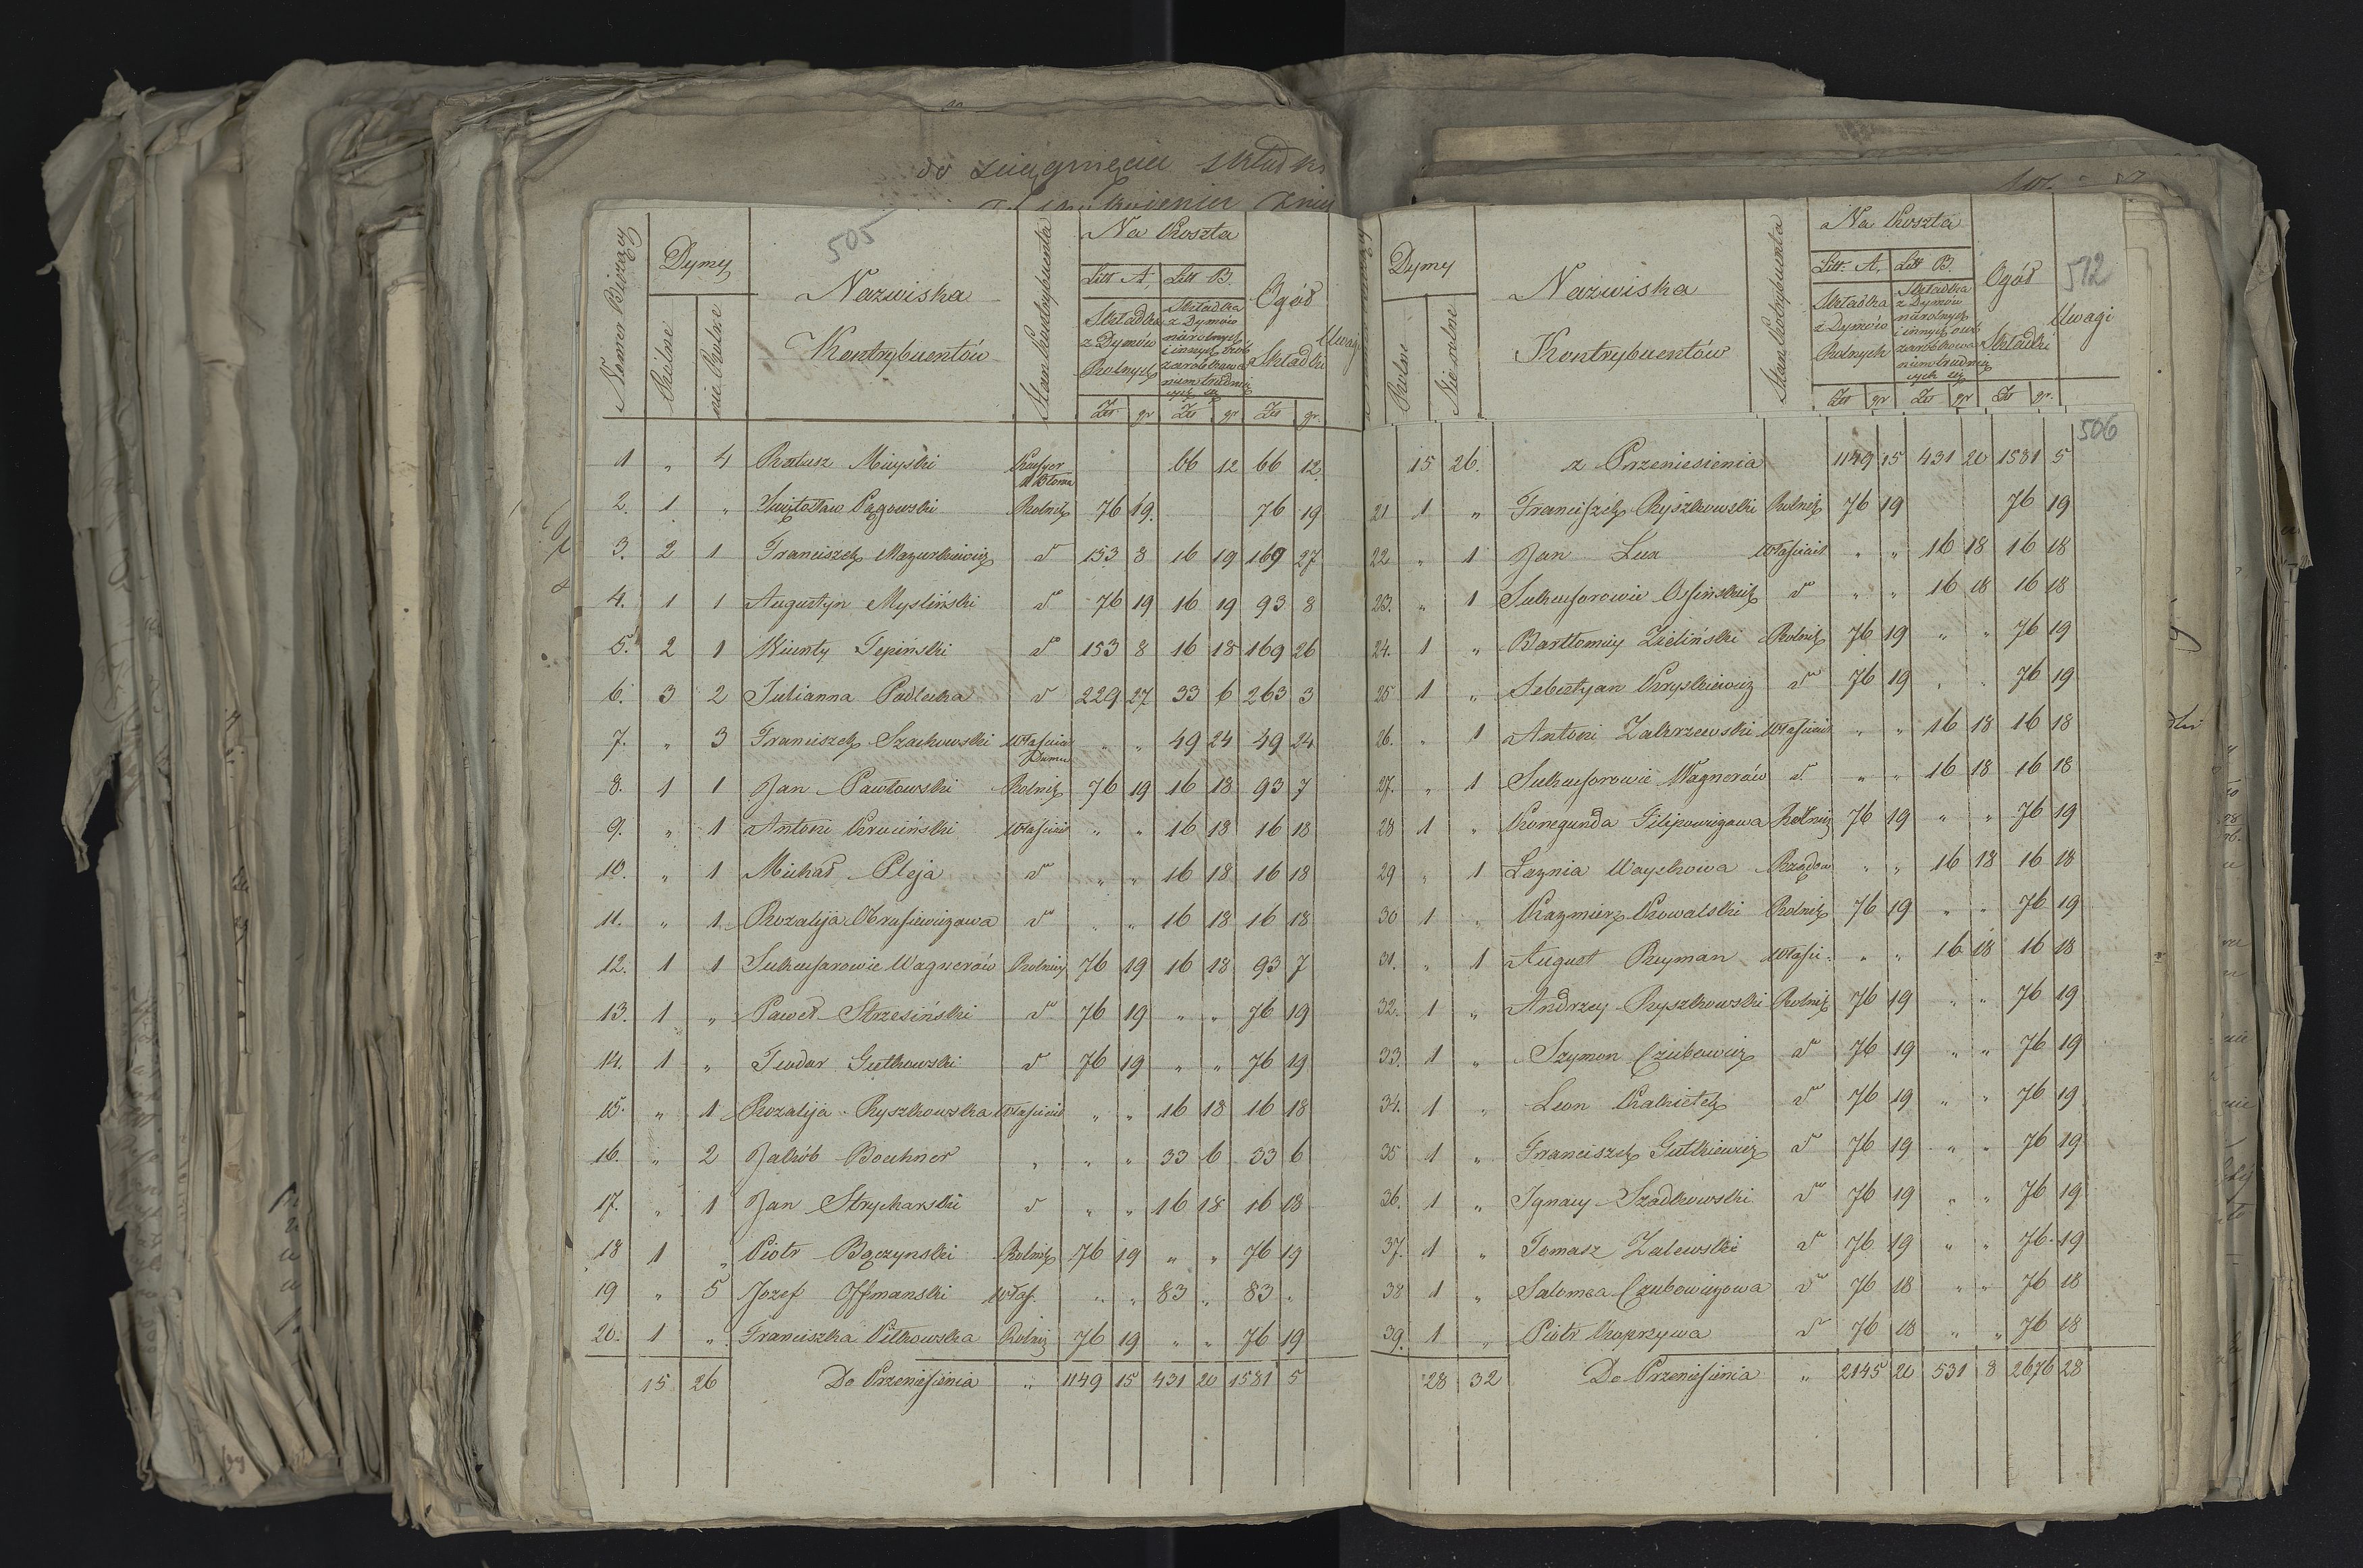 do sciągnięcia składki
505
Numer Bieżący
Dymy
Rólne
nie Rolne
Nazwiska
Kontrybuentów
Stan Kontrybuenta
Na Koszta
Litt A. Litt B.
Składka z Dymów Rolnych
Składka z Dymów nierolnych i innych osób zarobkowaniem trudniących się
Ogół Składki
Uwagi
Złt gr Zło gr Zło gr.
1 „ 4 Ratusz Mieyski Kassyer M. Błonia 66 12 66 12
2. 1 „ Swiętosław Pągowski Rolnik 76 19. 76 19
3. 2 1 Franciszek Mazurkiewicz d 153 8 16 19 169 27
4. 1 1 Augustyn Mysliński d 76 19 16 19 93 8
5. 2 1 Wicenty Tepiński d 153 8 16 18 169 26
6. 3 2 Julianna Podlecka d 229 27 33 6 263 3
7. „ 3 Franciszek Szachowski Własciciel Domu „ „ 49 24 49 24
8. 1 1 Jan Pawłowski Rolnik 76 19 16 18 93 7
9. „ 1 Antoni Kruciński Własciciel „ „ 16 18 16 18
10. „ 1 Michał Pleja d „ „ 16 18 16 18
11. „ 1 Rozalija d „ „ 16 18 16 18
12. 1 1 Sukcessorowie Wagnerów Rolnicy 76 19 16 18 93 7
13. 1 „ Paweł Strzesiński d 76 19 „ „ 76 19
14. 1 „ Teodor Gutkowski d 76 19 „ „ 76 19
15. „ 1 Rozalija Ryszkowska Własciciel „ „ 16 18 16 18
16. „ 2 Jakób Boehner „ „ „ 33 6 33 6
17. „ 1 Jan Strycharski d „ „ 16 18 16 18
18 1 „ Piotr Bączynski Rolnik 76 19 „ „ 76 19
19 „ 5 Jozef Offmanski Włas. „ „ 83 „ 83 „
20. 1 „ Franciszka Pitkowska Rolnicz 76 19 „ „ 76 19
15 26 Do Przeniesienia „ 1149 15 431 20 1581 5
512
Dymy
Rolne
Nie rolne
Nazwiska
Kontrybuentów
Stan Kontrybuenta
Na Koszta
Litt. A. Litt B.
Składka z Dymów Rolnych
Składka z Dymów nierolnych i innych osób zarobkowaniem trudniących się
Ogół Składki
Uwagi
Zło gr Zło gr Zło gr.
506
15 26. z Przeniesienia 1149 15 431 20 1581 5
21 1 „ Franciszek Ryszkowski Rolnik 76 19 76 19
22 „ 1 Jan Lux Własciciel „ „ 16 18 16 18
23. „ 1 Sukcessorowie Ossińskich d „ „ 16 18 16 18
24. 1 „ Bartłomiey Zieliński Rolnik 76 19 „ „ 76 19
25 1 „ Sebestyan Kryszkiewicz d 76 19 „ „ 76 19
26. „ 1 Antoni Zakrzewski Własciciel „ „ 16 18 16 18
27. „ 1 Sukcessorowie Wagnerów d „ „ 16 18 16 18
28 1 „ Konegunda Filipowiczowa Rolnicz 76 19 „ „ 76 19
29 „ 1 Łaznia Woyskowa Rządow „ „ 16 18 16 18
30 1 „ Kazmierz Kowalski Rolnik 76 19 „ „ 76 19
31. „ 1 August Reyman Własci. „ „ 16 18 16 18
32. 1 „ Andrzey Ryszkowski Rolnik 76 19 „ „ 76 19
33. 1 „ Szymon Czubowicz d 76 19 „ „ 76 19
34. 1 „ Leon Kakietek d 76 19 „ „ 76 19
35 1 „ Franciszek Gutkiewicz d 76 19 „ „ 76 19
36. 1 „ Ignacy Szadkowski d 76 19 „ „ 76 19
37. 1 „ Tomasz Zalewski d 76 19 „ „ 76 19
38 1 „ Salomea Czubowiczowa d 76 18 „ „ 76 18
39. 1 „ Piotr Koprzywa d 76 18 „ „ 76 18
28 32 Do Przeniesienia „ 2145 20 531 8 2676 28